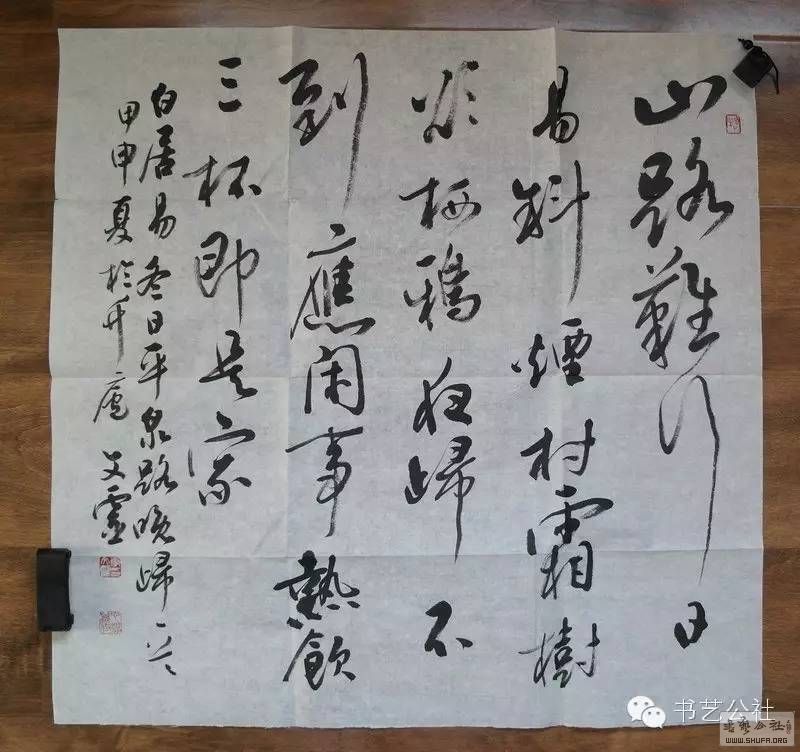 山路難行日
易斜煙村霜樹
欲栖鴉夜歸不
到應閑事熱飲
三杯即是家
白居易冬日平泉路晚歸一首
甲申夏於竹廬 文靈
书艺公社
书艺公社
WWW.SHUFA.ORG